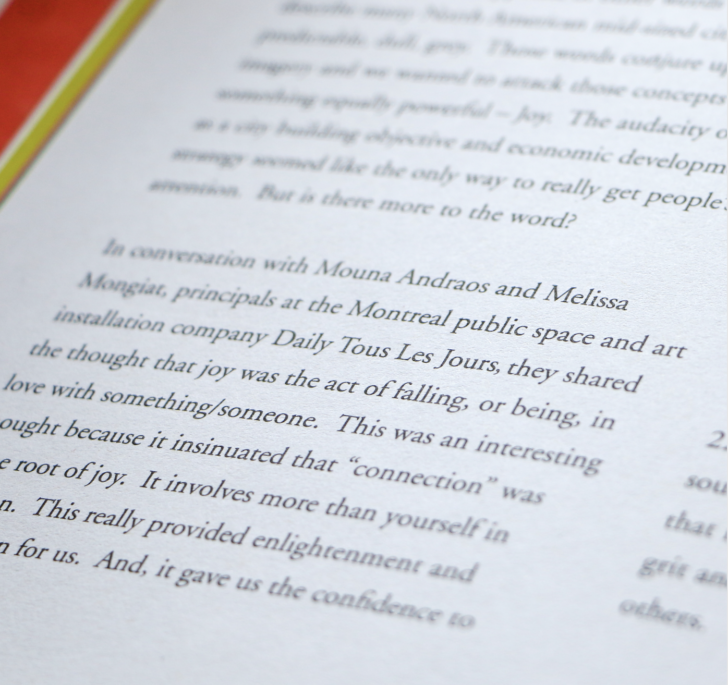 describe many North American mid-sized
predictable, dull, grey. Those words conjure
imagery and we wanted to attack those concepts
something equally powerful – Joy. The audacity
as a city building objective and economic developm
strategy seemed like the only way to really get people
attention. But is there more to the word?
In conversation with Mouna Andraos and Melissa
Mongiat, principals at the Montreal public space and art
installation company Daily Tous Les Jours, they shared
the thought that joy was the act of falling, or being, in
love with something/someone. This was an interesting
ought because it insinuated that “connection” was
e root of joy. It involves more than yourself in
n. This really provided enlightenment and
n for us. And, it gave us the confidence to
2.
sou
that
grit an
others.